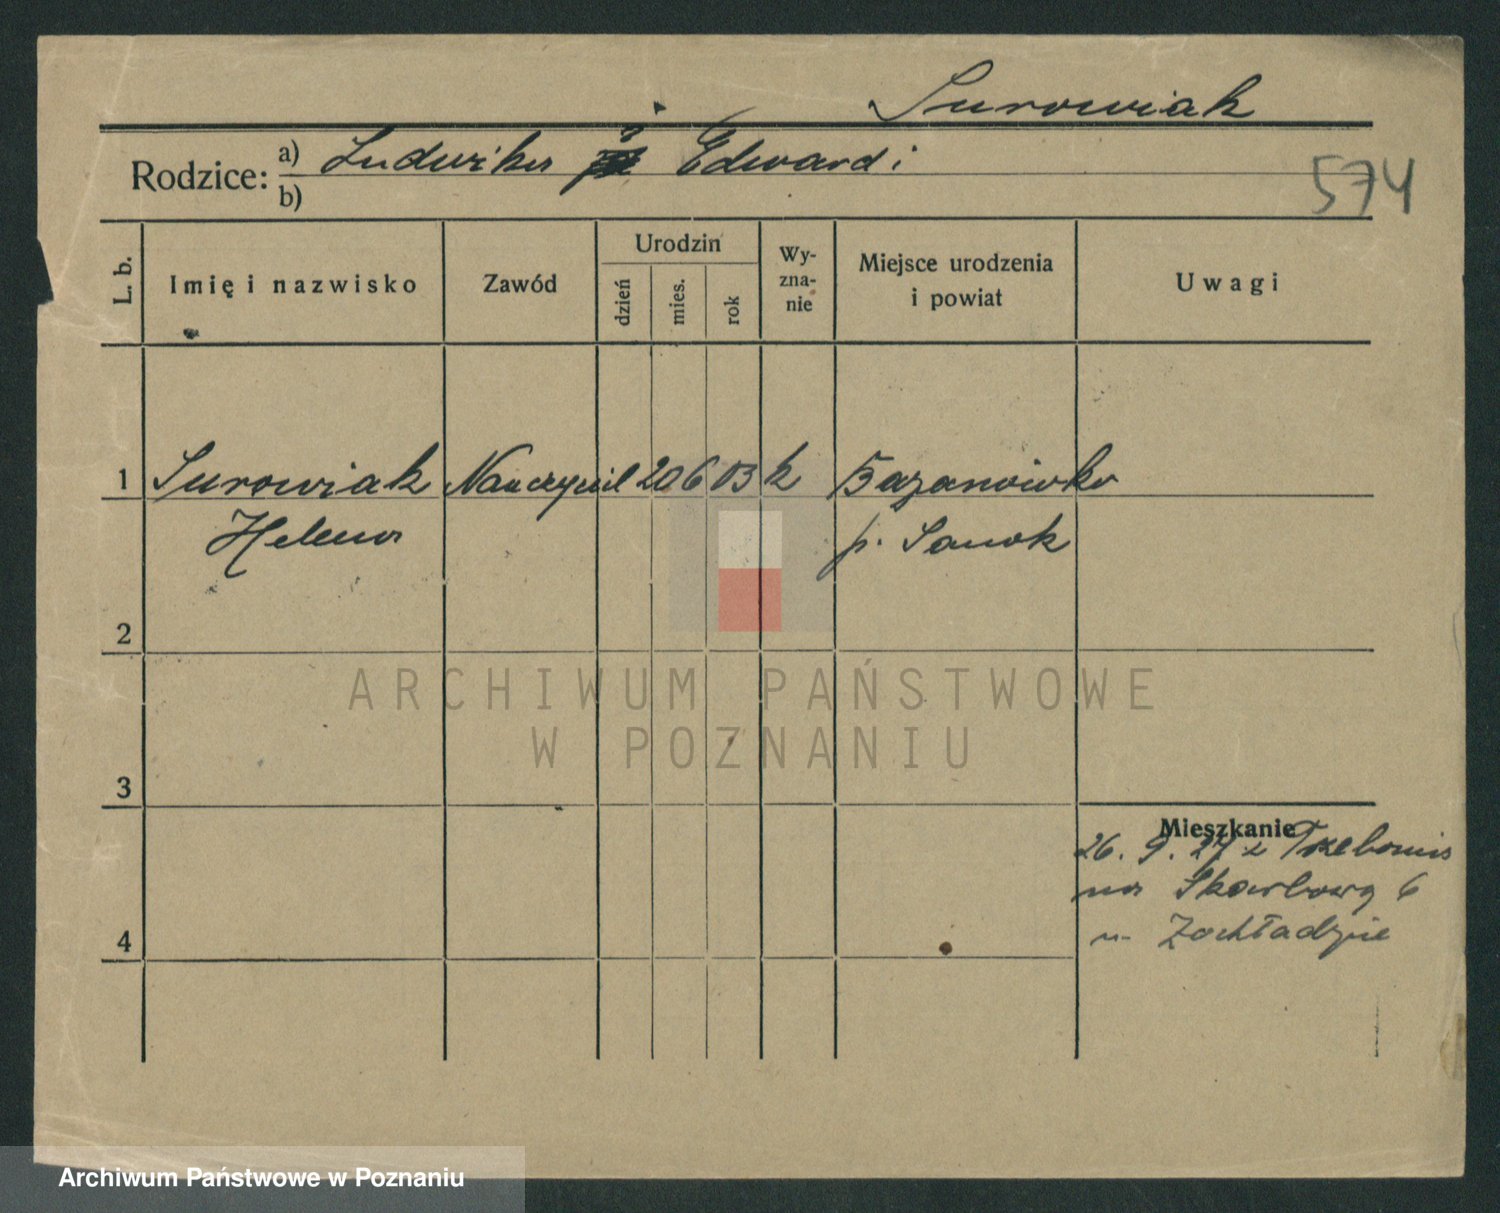 Surowiak
Rodzice: a) Ludwika i Edward
b)
574
L. b.
Imię i nazwisko
Zawód
Urodzin
dzień
mies.
rok
Wy-
zna-
nie
Miejsce urodzenia
i powiat
Uwagi
1 Surowiak Nauczyciel 20 6 03 k Bazanówka
Helena p. Sanok
2
3
4
Mieszkanie
26. 9. 27 z
na Skarbową 6
ARCHIWUM PAŃSTWOWE
W POZNANIU
Archiwum Państwowe w Poznaniu